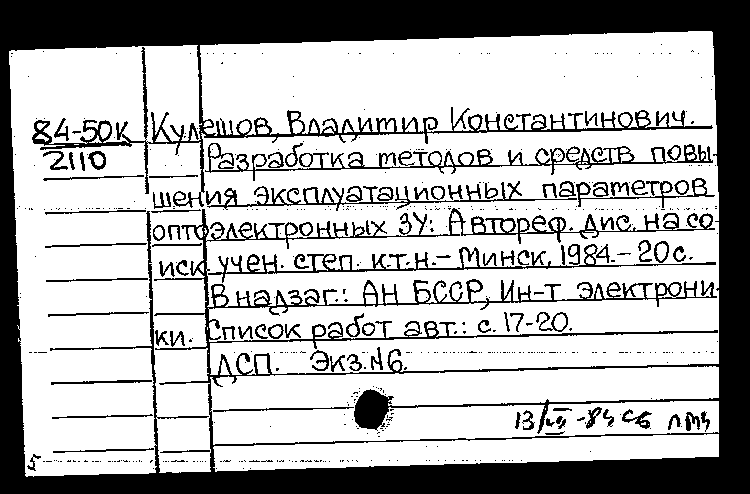 84-50К Кулешов, Владимир Константинович.
2110 Разработка методов и средств повы-
шения эксплуатационных параметров
оптоэлектронных ЗУ: Автореф. дис. на со-
иск. учен. степ. к.т.н.- Минск, 1984.- 20 с.
В надзаг.: АН БССР, Ин-т электрони-
ки. Список работ авт.: с. 17-20.
ДСП. Экз. №6.
13/
5